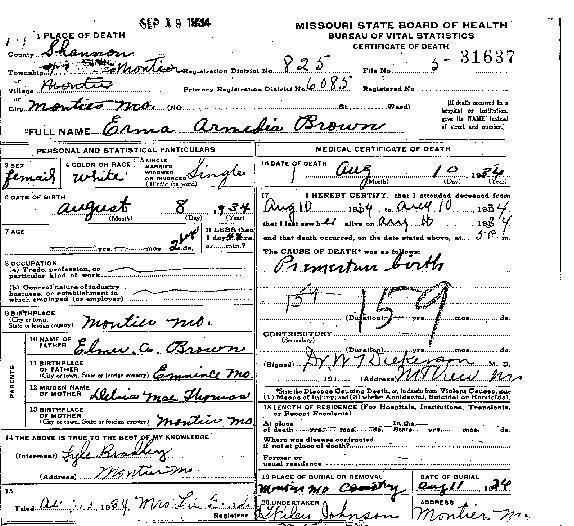 SEP 19 1934
MISSOURI STATE BOARD OF HEALTH
BUREAU OF VITAL STATISTICS
CERTIFICATE OF DEATH
1 PLACE OF DEATH
County Shannon
Township Montier Registration District No. 825 File No. 31637
or
Village Montier Primary Registration District No. 6085 Registered No.
or
City Montier Mo. (NO. St. Ward)
(If death occurred in a hospital or institution, give its NAME instead of street and number.)
FULL NAME Erma Armedia Brown
PERSONAL AND STATISTICAL PARTICULARS
3 SEX femail
4 COLOR OR RACE White
5 SINGLE MARRIED WIDOWED OR DIVORCED (Write the word) Single
6 DATE OF BIRTH
August 8 1934
(Month) (Day) (Year)
7 AGE
yrs. mos. 2 ds. or min.?
8 OCCUPATION
(a) Trade, profession, or particular kind of work
(b) General nature of industry business, or establishment in which employed (or employer)
9 BIRTHPLACE
(City or town, State or foreign country) Montier Mo.
PARENTS
10 NAME OF FATHER Elmer C. Brown
11 BIRTHPLACE OF FATHER
(City or town, State or foreign country) Eminence Mo.
12 MAIDEN NAME OF MOTHER Mae Thomas
13 BIRTHPLACE OF MOTHER
(City or town, State or foreign country) Montier Mo
14 THE ABOVE IS TRUE TO THE BEST OF MY KNOWLEDGE
(Informant) Lyle Bradley
(Address) Montier Mo.
15
Filed 1934 Mrs. Registrar
MEDICAL CERTIFICATE OF DEATH
16 DATE OF DEATH
Aug 10 1934
(Month) (Day) (Year)
17 I HEREBY CERTIFY, that I attended deceased from
Aug 10 1934 to Aug 10 1934
that I last saw her alive on Aug 10 1934
and that death occurred, on the date stated above, at 5 P. m.
The CAUSE OF DEATH* was as follows:
Premertur birth
159
159
(Duration) yrs. mos. ds.
CONTRIBUTORY
(Secondary)
(Duration) yrs. mos. ds.
(Signed) Dr W T Dickerson M. D.
191 (Address) Mo
*State the Disease Causing Death, or, in deaths from Violent Causes, state (1) Means of Injury; and (2) whether Accidental, Suicidal or Homicidal.
18 LENGTH OF RESIDENCE (For Hospitals, Institutions, Transients, or Recent Residents)
At place of death yrs. mos. ds. In the State yrs. mos. ds.
Where was disease contracted if not at place of death?
Former or usual residence
19 PLACE OF BURIAL OR REMOVAL
Montier Mo Aug 11 1934
20 UNDERTAKER ADDRESS
Johnson Montier Mo.